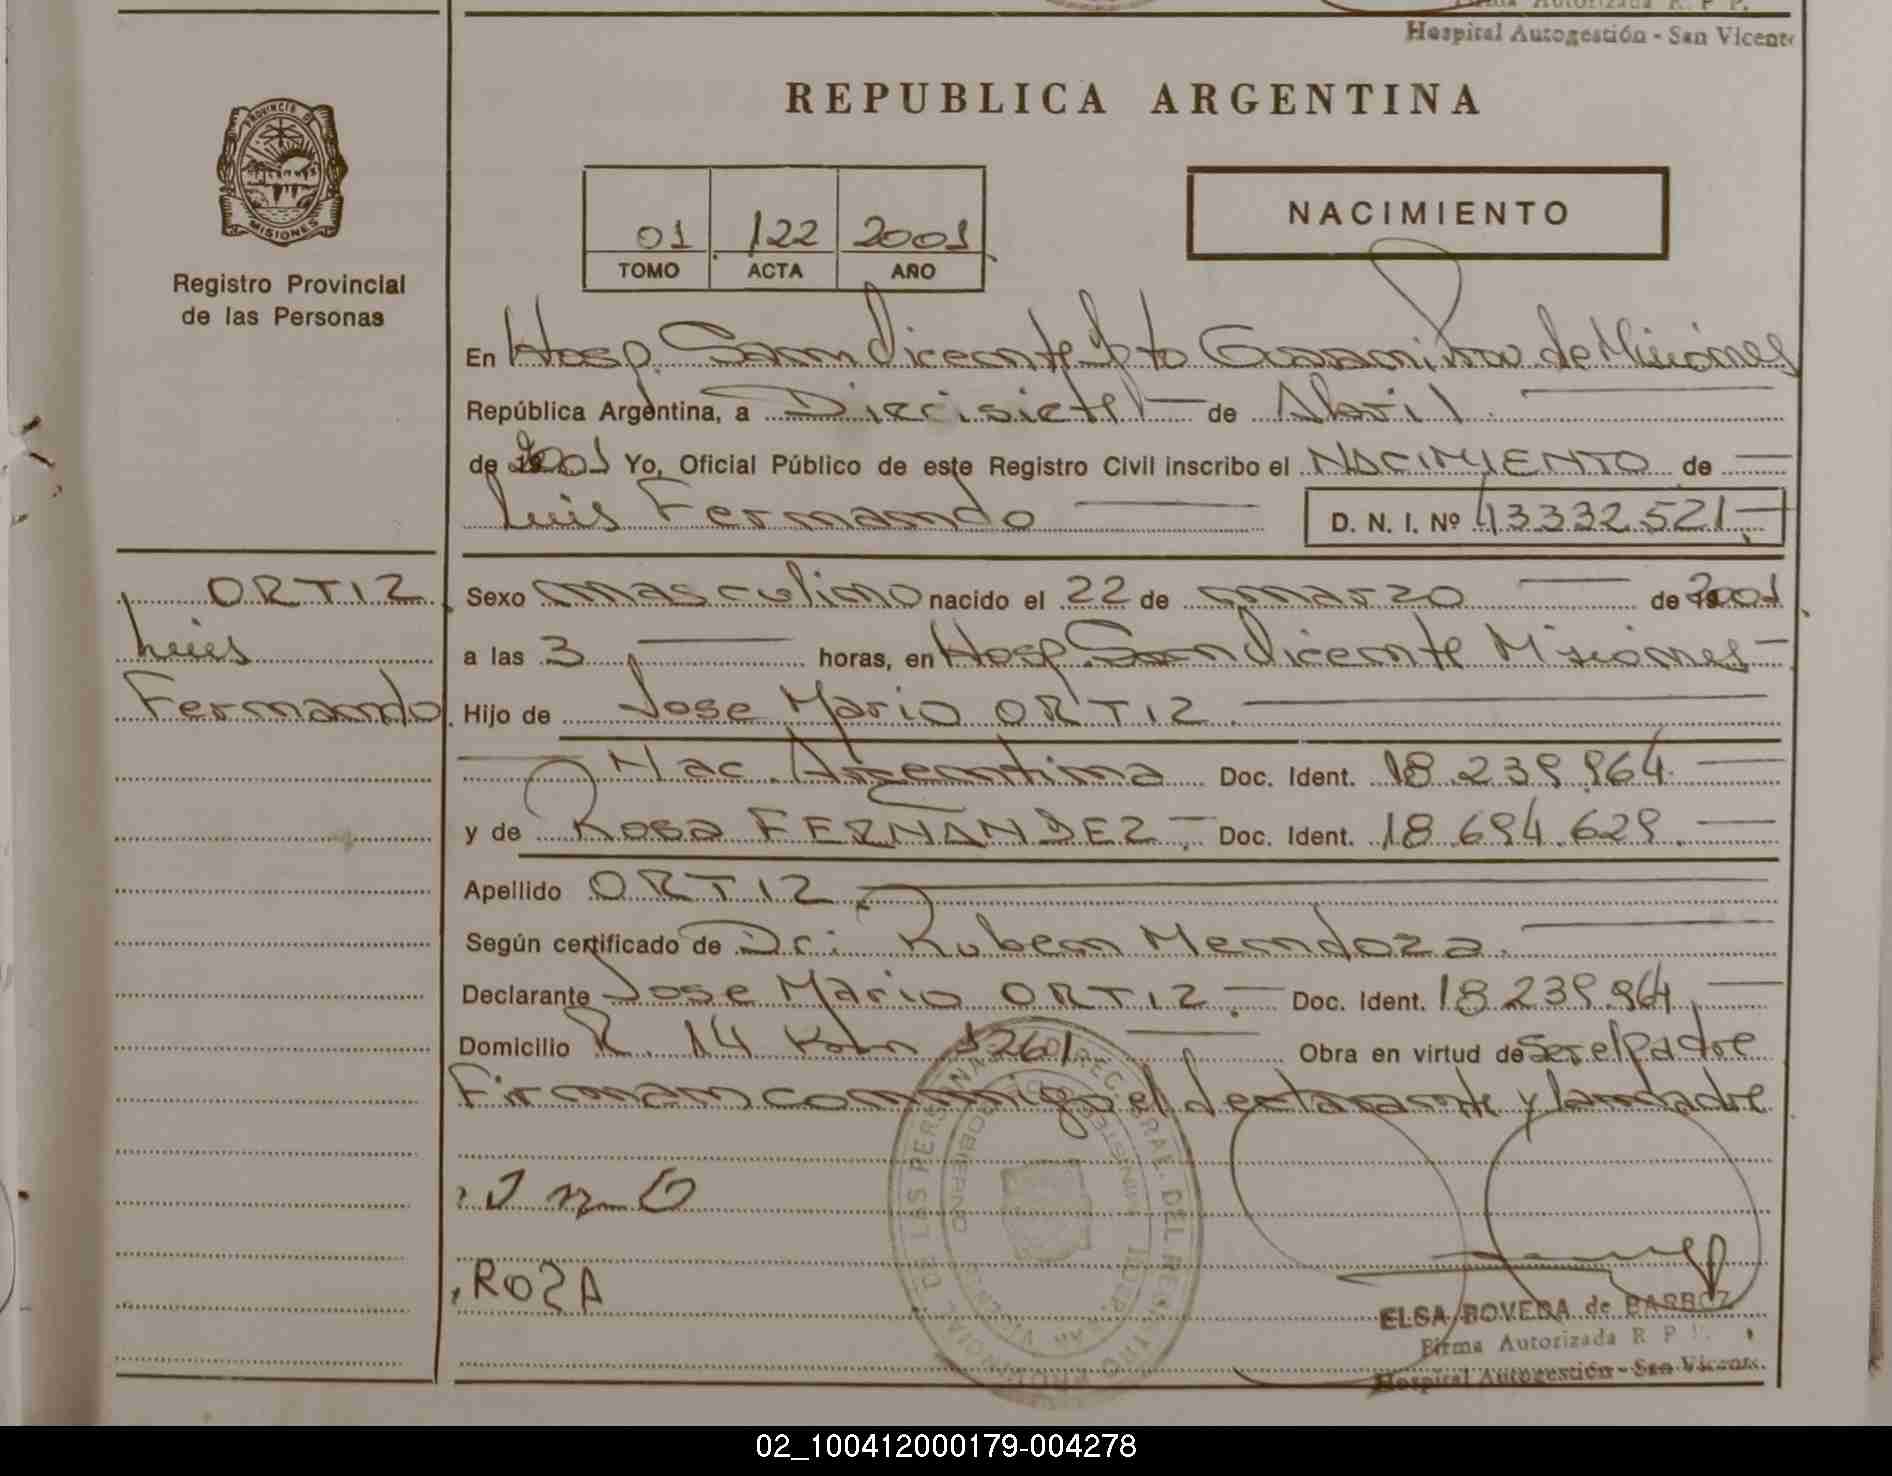 Firma Autorizada R. P. P.
Hospital Autogestión - San Vicente
REPUBLICA ARGENTINA
PROVINCIA DE
MISIONES
Registro Provincial
de las Personas
01 122 2001
TOMO ACTA AÑO
NACIMIENTO
En Hosp. San Vicente Dpto Guarani Prov de Misiones
República Argentina, a Diecisiete de Abril
de 2001 Yo, Oficial Público de este Registro Civil inscribo el NACIMIENTO de
Luis Fernando D. N. I. Nº 43332521
ORTIZ
Luis
Fernando
Sexo masculino nacido el 22 de marzo de 2001
a las 3 horas, en Hosp San Vicente Misiones
Hijo de Jose Mario ORTIZ
Nac. Argentina Doc. Ident. 18.239.964
y de Rosa FERNANDEZ Doc. Ident. 18.694.629
Apellido ORTIZ
Según certificado de Dr: Ruben Mendoza
Declarante Jose Mario ORTIZ Doc. Ident. 18.239.964
Domicilio R. 14 Km 1261 Obra en virtud de Ser el padre
Firman conmigo el declarante y la madre
ROZA
ELSA BOVEDA de BARBOZ
Firma Autorizada R P
Hospital Autogestión - San Vicente.
02_100412000179-004278